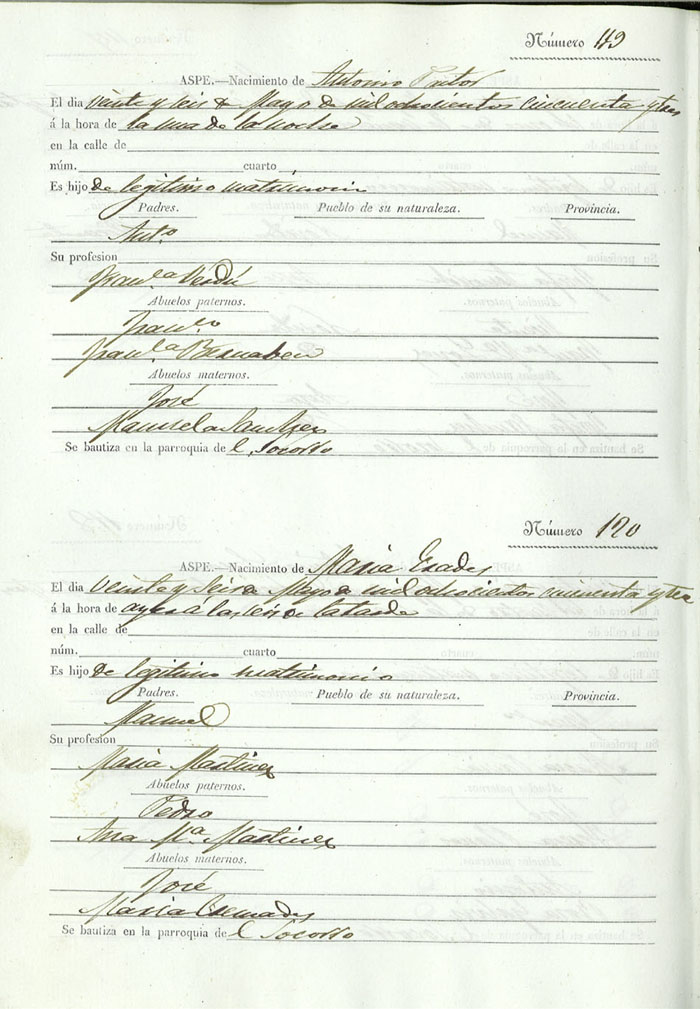 Número 119
ASPE.—Nacimiento de Antonio Pastor
El dia veinte y seis de Mayo de mil ochocientos cincuenta y tres
á la hora de la una de la noche
en la calle de
núm. cuarto
Es hijo de legitimo matrimonio
Padres. Pueblo de su naturaleza. Provincia.
Ant.o
Su profesion
Fran.ca Verdú
Abuelos paternos.
Fran.co
Fran.ca Bernabeu
Abuelos maternos.
José
Manuela Sanchez
Se bautiza en la parroquia de l Socorro
Número 120
ASPE.—Nacimiento de Maria
El dia veinte y seis de Mayo de mil ochocientos cincuenta y tres
á la hora de ayer á las seis de la tarde
en la calle de
núm. cuarto
Es hijo de legitimo matrimonio
Padres. Pueblo de su naturaleza. Provincia.
Manuel
Su profesion
Maria Martinez
Abuelos paternos.
Pedro
Ana M.a Martinez
Abuelos maternos.
José
Maria
Se bautiza en la parroquia de l Socorro